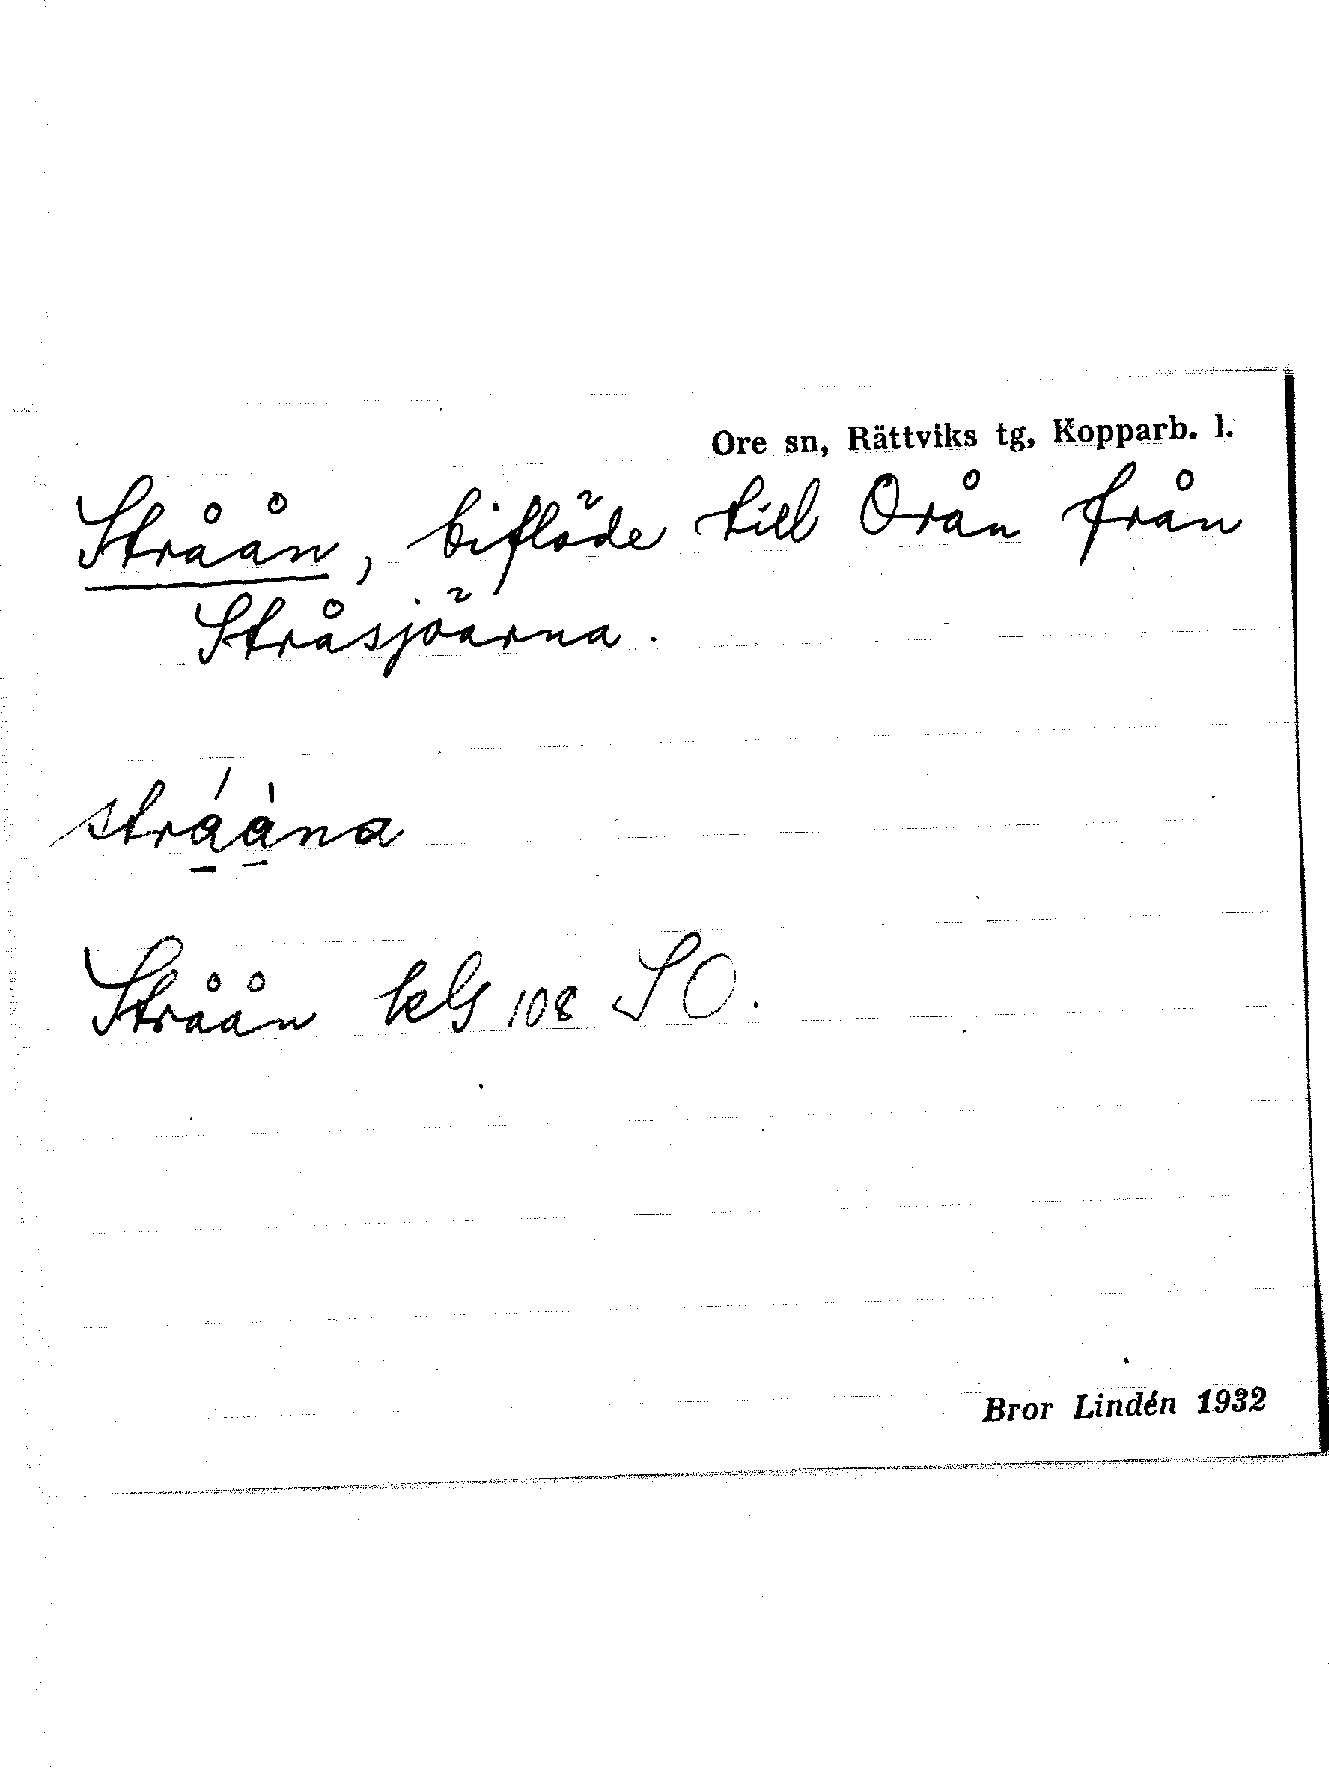 Ore sn, Rättviks tg, Kopparb. l.
Stråån, biflöde till Orån från
Stråsjöarna.
strá̱à̱na
Stråån kbl 108 SO.
Bror Lindén 1932